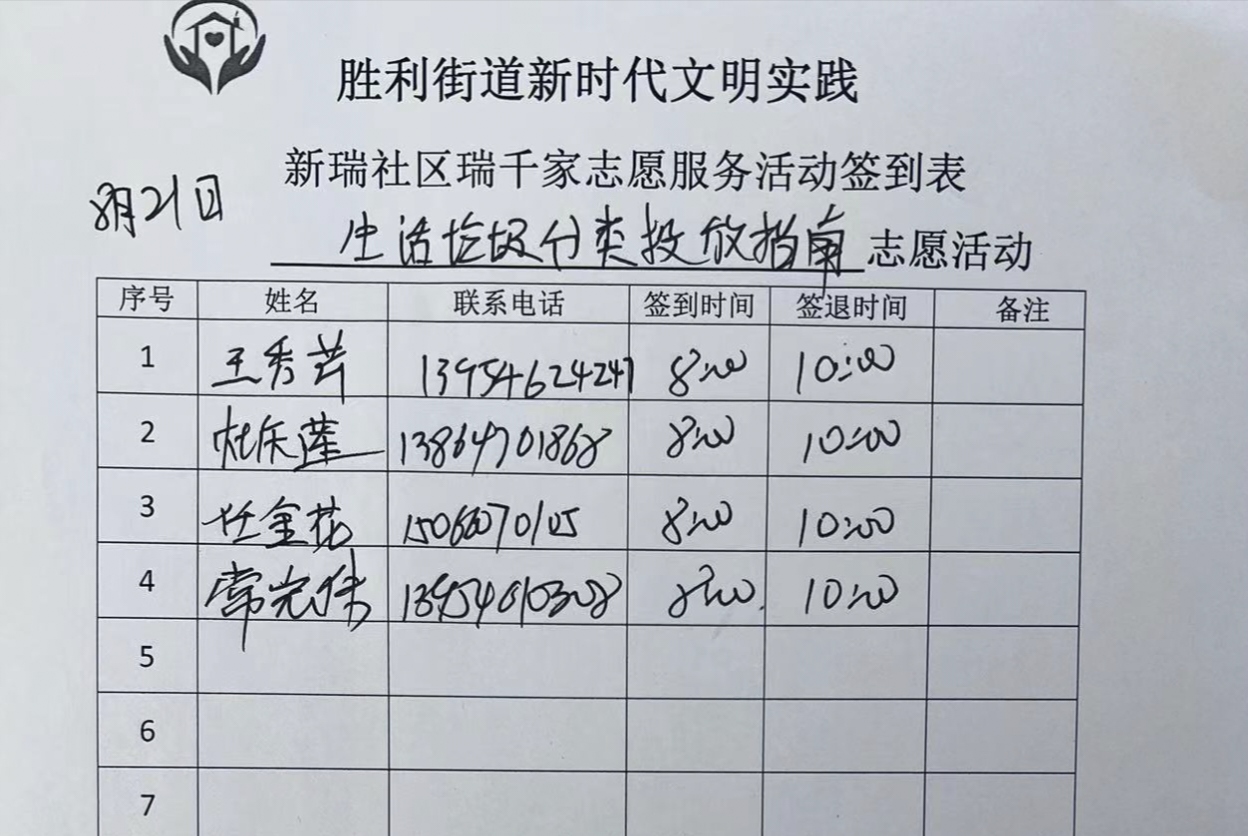 胜利街道新时代文明实践
新瑞社区瑞千家志愿服务活动签到表
8月21日
生活垃圾分类投放指南 志愿活动
序号 姓名 联系电话 签到时间 签退时间 备注
1 王秀芸 13954624247 8:00 10:00
2 杜庆莲 13864701868 8:00 10:00
3 任金花 8:00 10:00
4 8:00 10:00
5
6
7